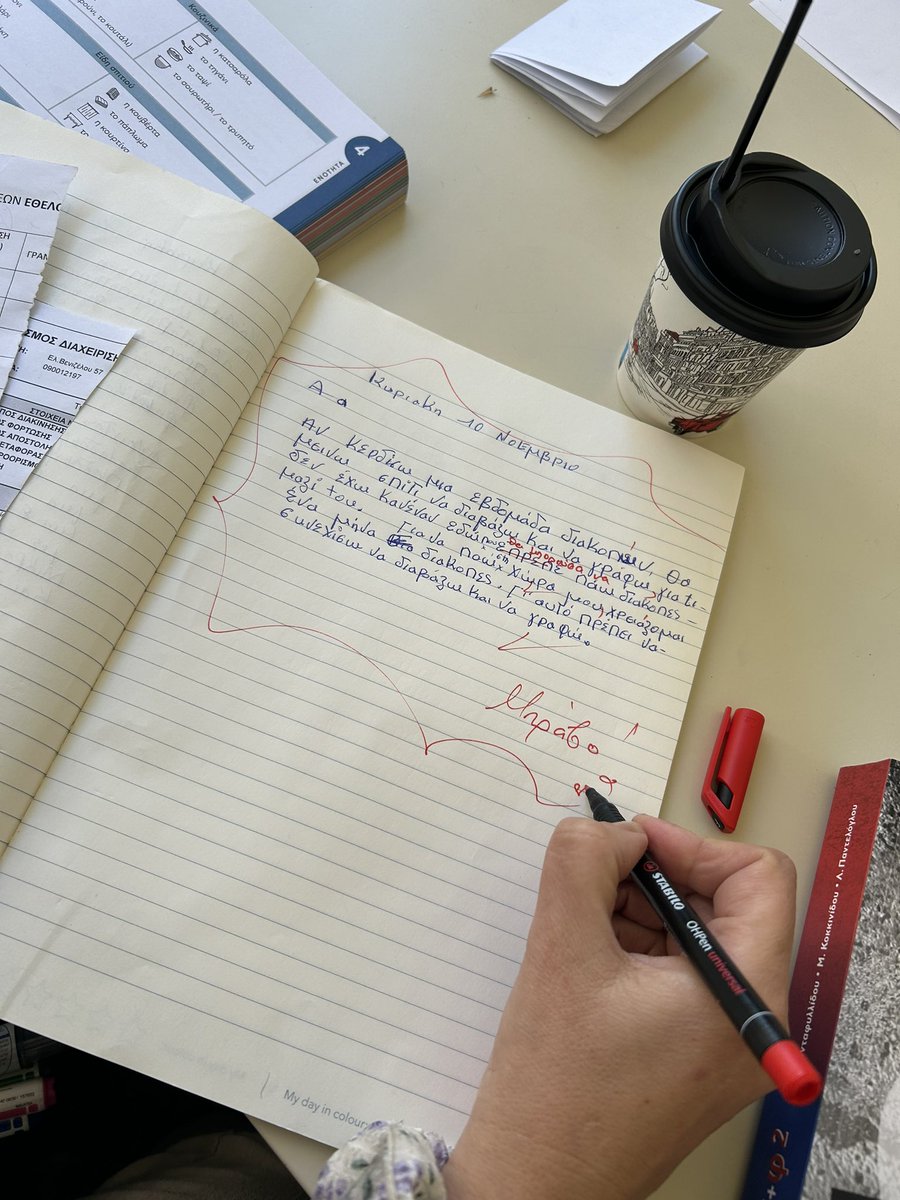 Κουζινικά
το κουτάλι
η κατσαρόλα
το τηγάνι
το ταψί
το σουρωτήρι / το τρυπητό
Είδη σπιτιού
η κουβέρτα
το πάπλωμα
η κουρτίνα
ΕΝΟΤΗΤΑ 4
ΕΩΝ ΕΘΕΛ
ΓΡΑΜ
ΣΜΟΣ ΔΙΑΧΕΙΡΙΣΗ
Ελ.Βενιζέλου 57
090012197
ΣΤΟΙΧΕΙΑ
ΠΟΣ ΔΙΑΚΙΝΗΣΗΣ
Σ ΦΟΡΤΩΣΗΣ
Σ ΑΠΟΣΤΟΛΗ
ΕΤΑΦΟΡΑΣ
ΡΟΟΡΙΣΜΟ
Κυριακη 10 Νοεμβριο
Α α
Αν κερδίκω μια εβδομάδα διακοπών. Θα
μεινω σπίτι να διαβάζω και να γράφω, γιατι
δεν έχω κανέναν εδώ θα μπορούσα να πάω διακοπές -
μαζί του. Για να πάω χώρα μου χρειάζομαι
ένα μήνα διακοπές. Γι' αυτό πρέπει να -
συνεχίσω να διαβάζω και να γράφω.
Μπράβο!
STABILO OHPen universal
My day in colour
νταφυλλίδου • Μ. Κοκκινίδου • Λ. Παντελόγλου
+ φ 2